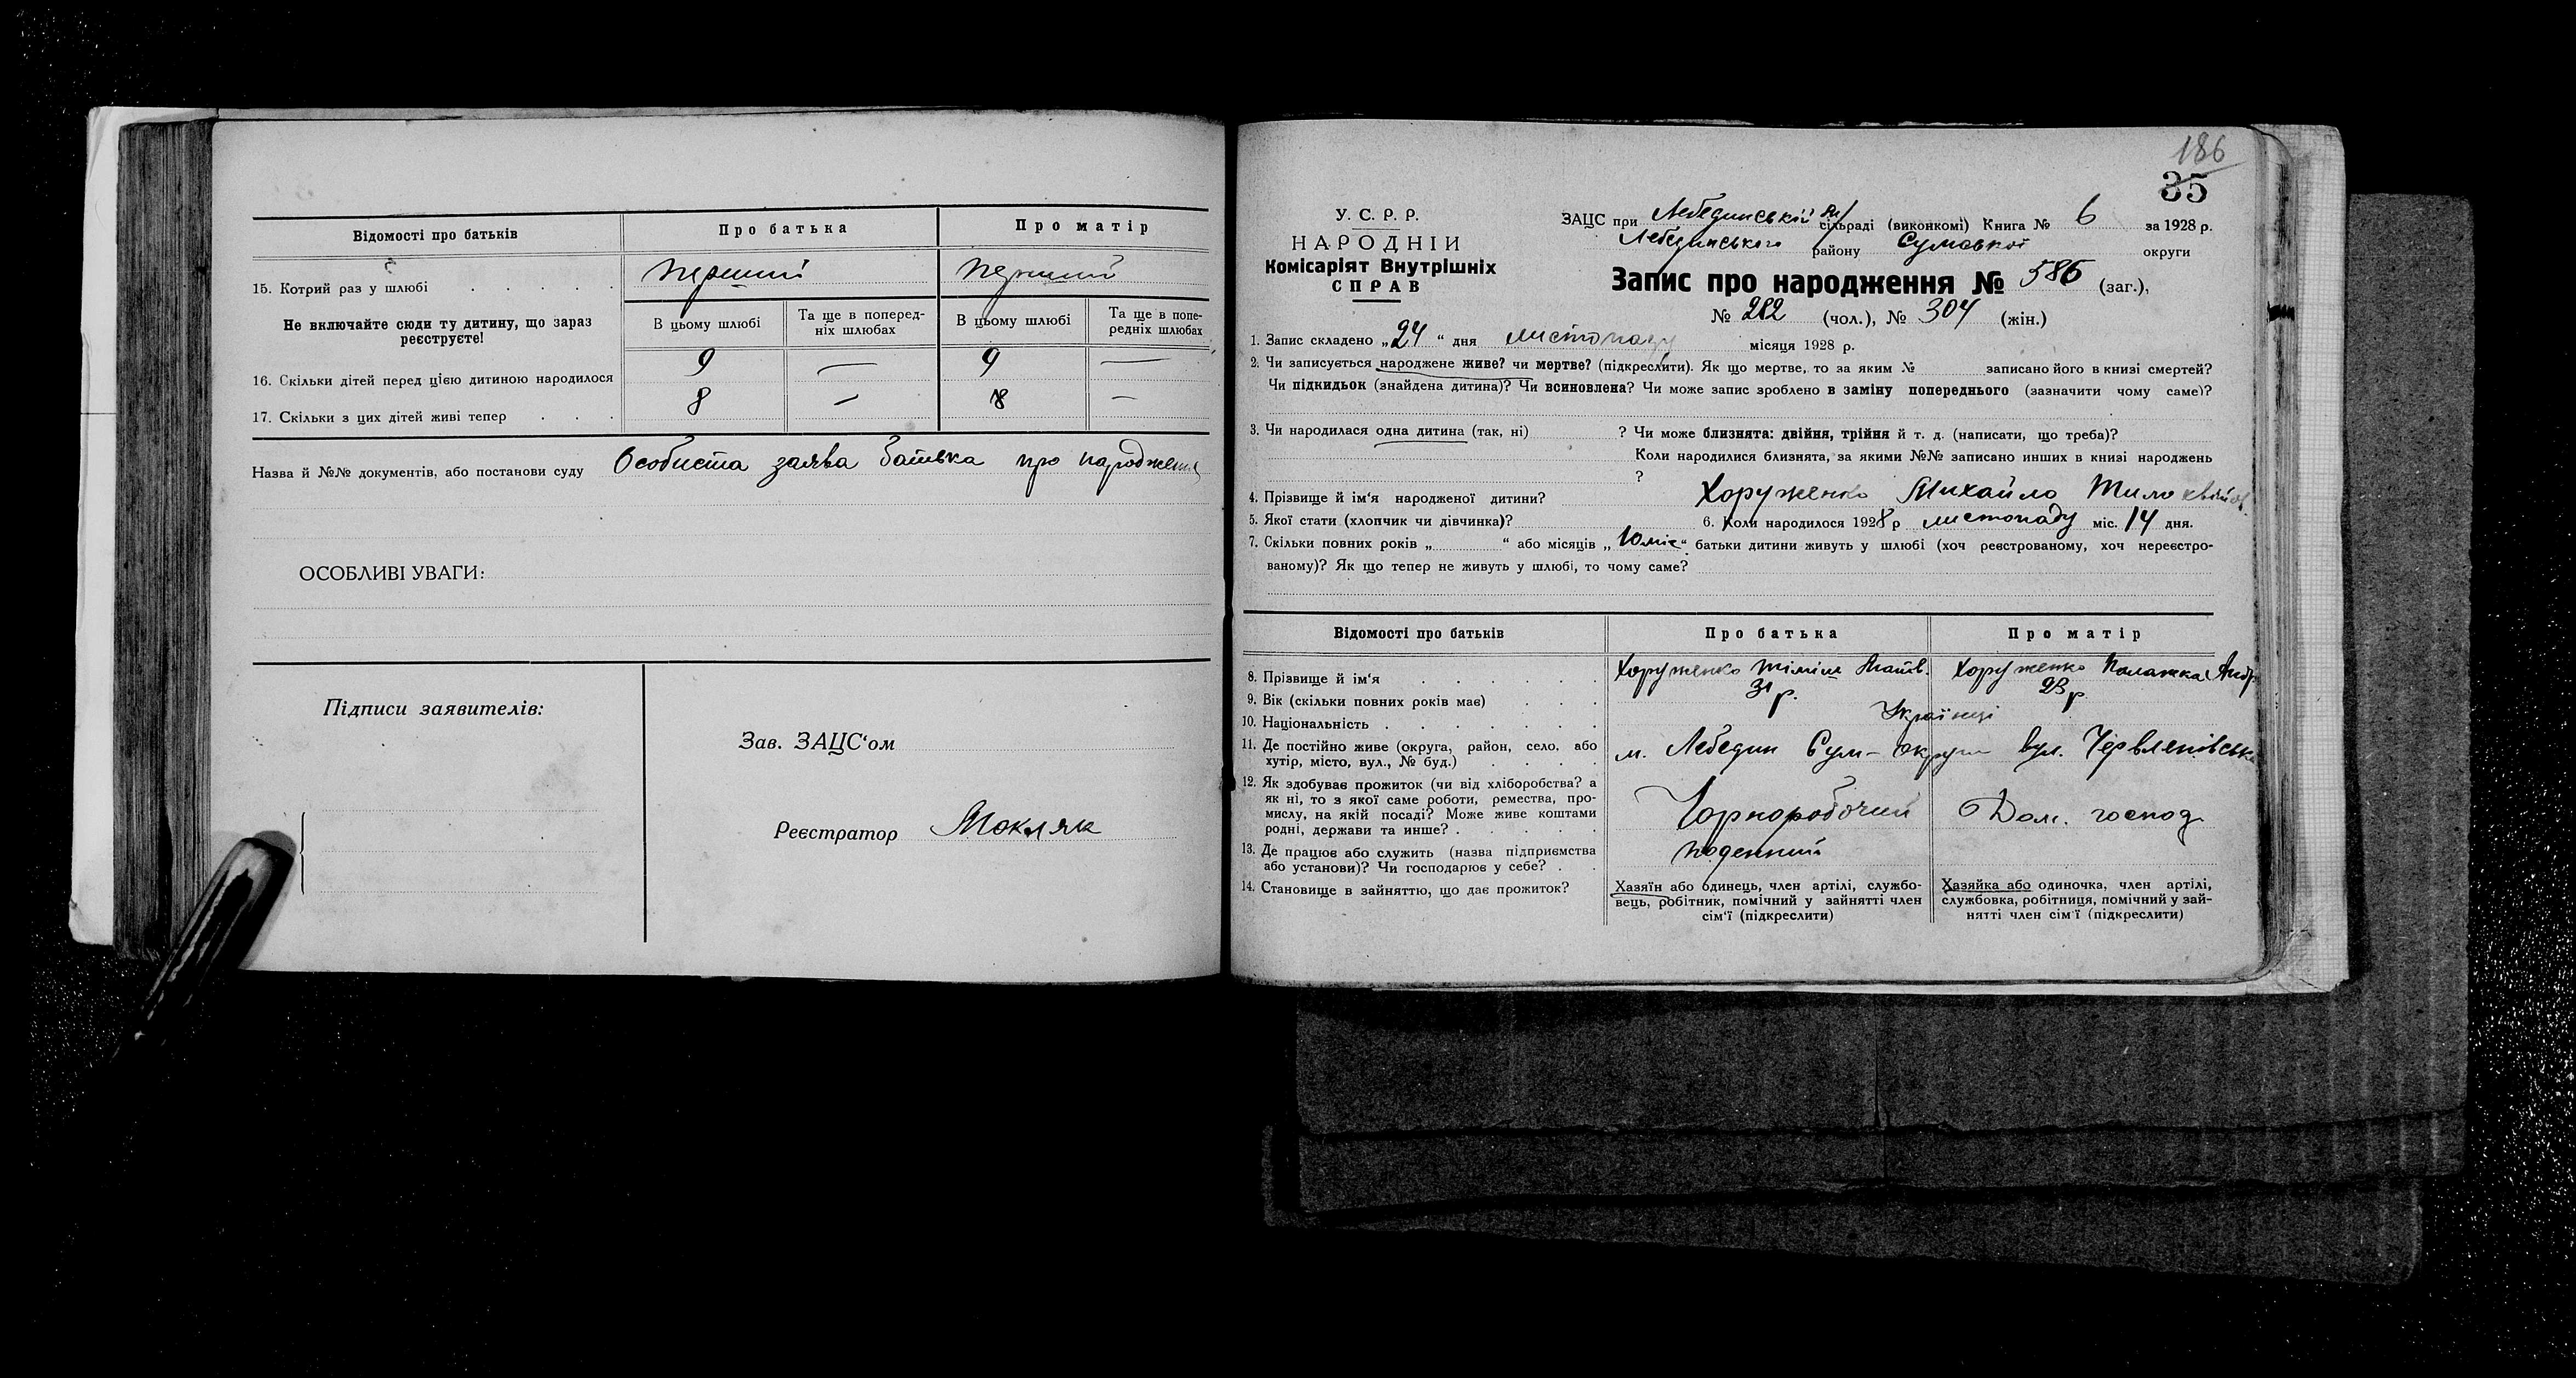 Відомості про батьків
Про батька
Про матір
15. Котрий раз у шлюбі
перший
перший
Не включайте сюди ту дитину, що зараз реєструєте!
В цьому шлюбі
Та ще в поперед-
ніх шлюбах
В цьому шлюбі
Та ще в попе-
редніх шлюбах
16. Скільки дітей перед цією дитиною народилося
9 — 9 —
17. Скільки з цих дітей живі тепер
8 — 8 —
Назва й №№ документів, або постанови суду Особиста заява батька про народження
ОСОБЛИВІ УВАГИ:
Підписи заявителів:
Зав. ЗАЦС‘ом
Реєстратор Мокляк
186
35
У. С. Р. Р.
НАРОДНІЙ
Комісаріят Внутрішніх
СПРАВ
ЗАЦС при Лебединській сільраді (виконкомі) Книга № 6 за 1928 р.
Лебединського району Сумської округи
Запис про народження № 586 (заг.),
№ 282 (чол.), № 304 (жін.)
1. Запис складено „24“ дня листопаду місяця 1928 р.
2. Чи записується народжене живе? чи мертве? (підкреслити). Як що мертве, то за яким № записано його в книзі смертей?
Чи підкидьок (знайдена дитина)? Чи всиновлена? Чи може запис зроблено в заміну попереднього (зазначити чому саме)?
3. Чи народилася одна дитина (так, ні) ? Чи може близнята: двійня, трійня й т. д. (написати, що треба)?
Коли народилися близнята, за якими №№ записано инших в книзі народжень
?
4. Прізвище й ім‘я народженої дитини? Хоруженко Михайло
5. Якої стати (хлопчик чи дівчинка)? 6. Коли народилося 1928 р листопаду міс. 14 дня.
7. Скільки повних років „ “ або місяців „10 міс“ батьки дитини живуть у шлюбі (хоч реєстрованому, хоч нереєстро-
ваному)? Як що тепер не живуть у шлюбі, то чому саме?
Відомості про батьків
Про батька
Про матір
8. Прізвище й ім‘я
Хоруженко
Хоруженко Палажка Андр
9. Вік (скільки повних років має)
31 р.
23 р
10. Національність
Українці
11. Де постійно живе (округа, район, село, або
хутір, місто, вул., № буд.)
м. Лебедин Сум- округи вул.
12. Як здобуває прожиток (чи від хліборобства? а
як ні, то з якої саме роботи, ремества, про-
мислу, на якій посаді? Може живе коштами
родні, держави та инше?
Чорноробочий
Дом. господ
13. Де працює або служить (назва підприємства
або установи)? Чи господарює у себе?
поденний
14. Становище в зайняттю, що дає прожиток?
Хазяїн або одинець, член артілі, службо-
вець, робітник, помічний у зайнятті член
сім‘ї (підкреслити)
Хазяйка або одиночка, член артілі,
службовка, робітниця, помічний у зай-
нятті член сім‘ї (підкреслити)